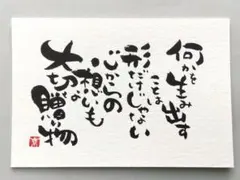 何かを
生み出す
ことは
形だけじゃない
心からの
想いも
大切な
贈り物